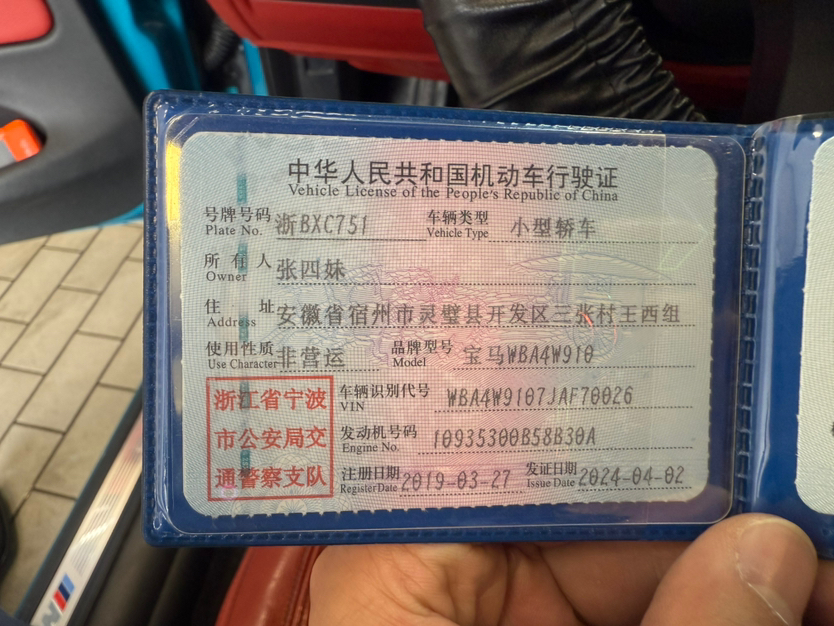 中华人民共和国机动车行驶证
Vehicle License of the People's Republic of China
号牌号码 浙BXC751 车辆类型 小型轿车
Plate No. Vehicle Type
所有人 张四妹
Owner
住址 安徽省宿州市灵璧县开发区三张村王西组
Address
使用性质 非营运 品牌型号 宝马WBA4W910
Use Character Model
浙江省宁波
市公安局交
通警察支队
车辆识别代号 WBA4W9107JAF70026
VIN
发动机号码 10935300B58B30A
Engine No.
注册日期 2019-03-27 发证日期 2024-04-02
Register Date Issue Date
M